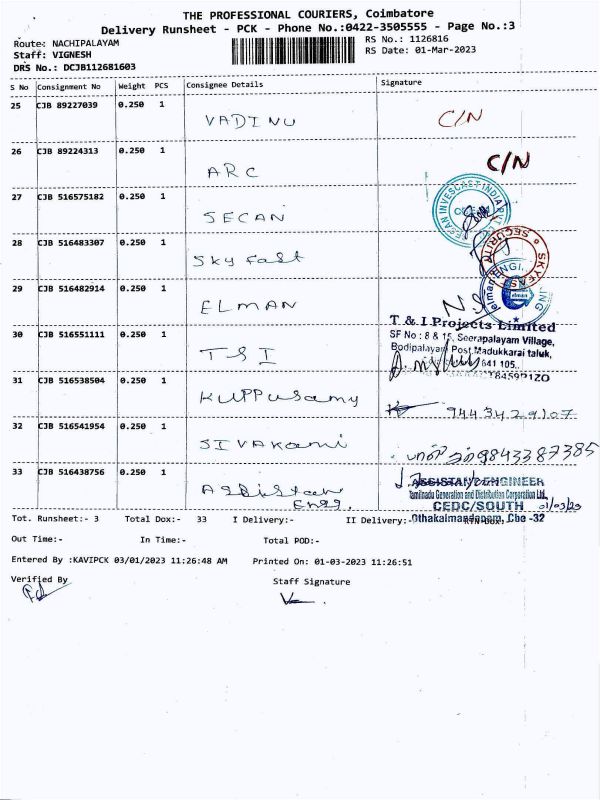 THE PROFESSIONAL COURIERS, Coimbatore
Delivery Runsheet - PCK - Phone No.:0422-3505555 - Page No.:3
Route: NACHIPALAYAM
Staff: VIGNESH
DRS No.: DCJB112681603
RS No.: 1126816
RS Date: 01-Mar-2023
S No Consignment No Weight PCS Consignee Details Signature
25 CJB 89227039 0.250 1
VADINU C/N
26 CJB 89224313 0.250 1
ARC C/N
27 CJB 516575182 0.250 1
SECAN
28 CJB 516483307 0.250 1
Sky fast
SECURITY SKYFAS
29 CJB 516482914 0.250 1
ELMAN
elman
T & I Projects Limited
SF No : 8 & 15, Seerapalayam Village,
Bodipalayam Post, Madukkarai taluk,
641 105.
30 CJB 516551111 0.250 1
TSI
31 CJB 516538504 0.250 1
Kuppusamy 9443429107
32 CJB 516541954 0.250 1
SIVAKami 9843387385
33 CJB 516438756 0.250 1
Assistant Engg.
ASSISTANT ENGINEER
Tamilnadu Generation and Distribution Corporation Ltd.,
CEDC/SOUTH 01/03/23
Othakalmandapam, Cbe -32
Tot. Runsheet:- 3 Total Dox:- 33 I Delivery:- II Delivery:- RTN DOX:
Out Time:- In Time:- Total POD:-
Entered By :KAVIPCK 03/01/2023 11:26:48 AM Printed On: 01-03-2023 11:26:51
Verified By Staff Signature